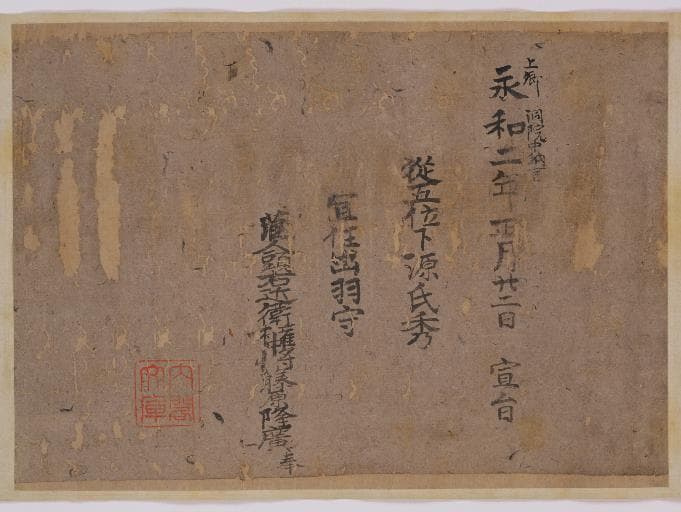 上卿 洞院中納言
永和二年正月廿二日 宣旨
從五位下源氏秀
宜任出羽守
蔵人頭右近衛権中将藤原隆廣奉
内閣
文庫